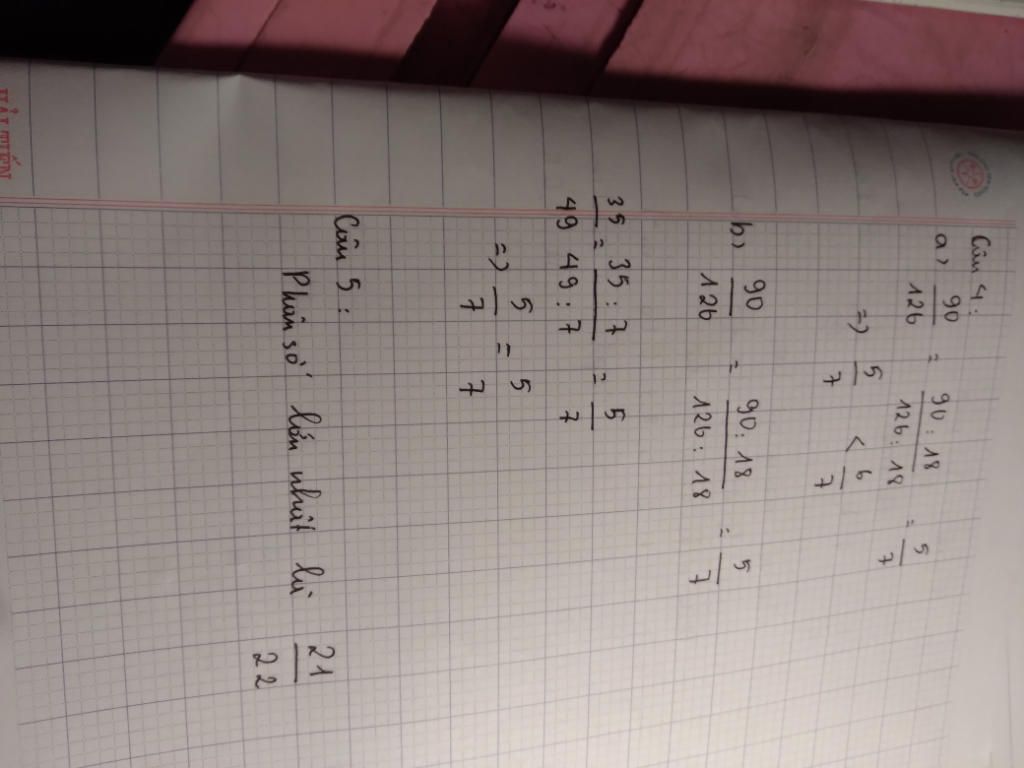 HẢI TIẾN
Câu 4:
a) 90/126 = 90:18/126:18 = 5/7
=> 5/7 < 6/7
b) 90/126 = 90:18/126:18 = 5/7
35/49 = 35:7/49:7 = 5/7
=> 5/7 = 5/7
Câu 5:
Phân số lớn nhất là 21/22